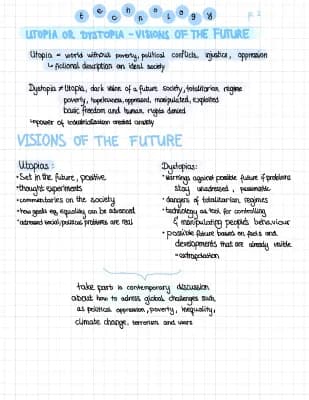 technology
p. 2
UTOPIA OR DYSTOPIA - VISIONS OF THE FUTURE
Utopia = world without poverty, political conflicts, injustice, oppression
↳ fictional description an ideal society
Dystopia ≠ Utopia, dark vision of a future society, totalitarian regime
poverty, hopelessness, oppressed, manipulated, exploited
basic freedom and human rights denied
↳ power of industrialisation created anxiety
VISIONS OF THE FUTURE
Utopias:
• Set in the future, positive
• thought experiments
• commentaries on the society
• how goals eg. equality can be advanced
• adressed social/political problems are real
Dystopias:
• warnings against possible future if problems
stay unadressed, pessimistic
• dangers of totalitarian regimes
• technology as tool for controlling
& manipulating people's behaviour
• possible future based on facts and
developments that are already visible
= extrapolation
take part in contemporary discussion
about how to adress global challenges such
as political oppression, poverty, inequality,
climate change, terrorism and wars